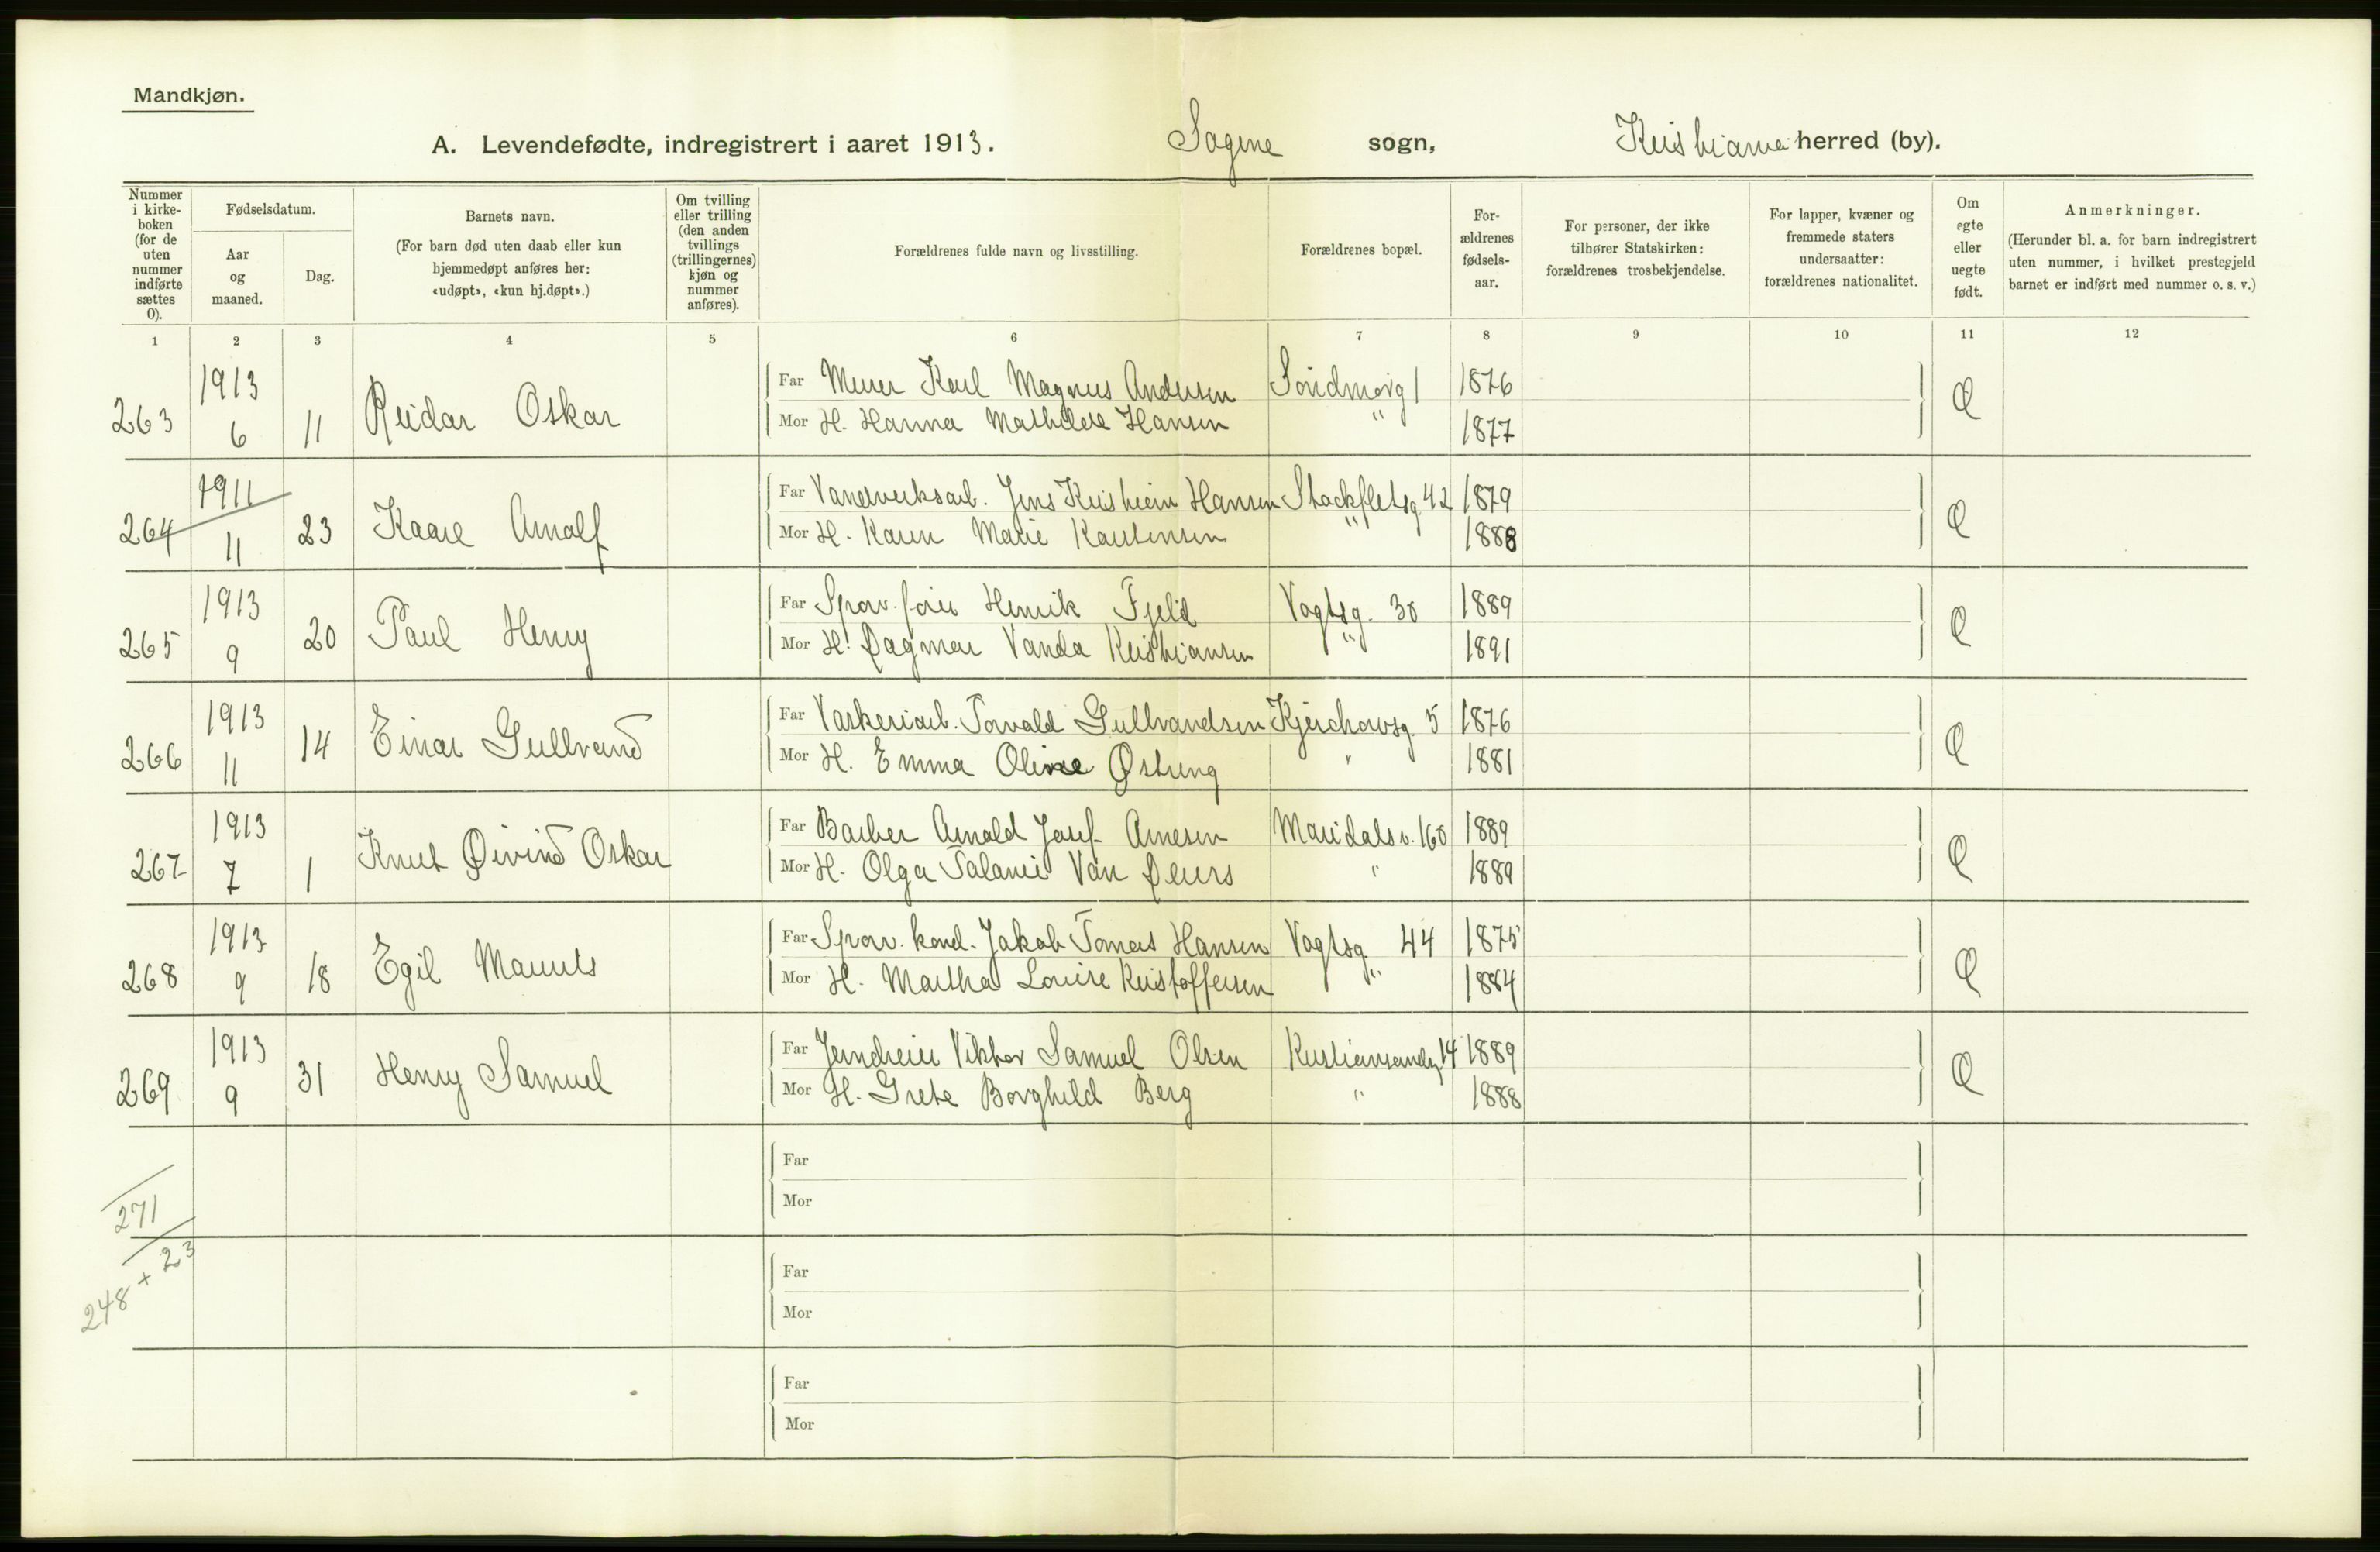 Mandkjøn.
A. Levendefødte, indregistrert i aaret 1913. Sagene sogn, Kristiania herred (by).
Nummer i kirke-boken (for de uten nummer indførte sættes 0).
Fødselsdatum.
Aar og maaned.
Dag.
Barnets navn.
(For barn død uten daab eller kun hjemmedøpt anføres her: «udøpt», «kun hj.døpt».)
Om tvilling eller trilling (den anden tvillings (trillingernes) kjøn og nummer anføres).
Forældrenes fulde navn og livsstilling.
Forældrenes bopæl.
For-ældrenes fødsels-aar.
For personer, der ikke tilhører Statskirken: forældrenes trosbekjendelse.
For lapper, kvæner og fremmede staters undersaatter: forældrenes nationalitet.
Om egte eller uegte født.
Anmerkninger.
(Herunder bl. a. for barn indregistrert uten nummer, i hvilket prestegjeld barnet er indført med nummer o. s. v.)
1 2 3 4 5 6 7 8 9 10 11 12
263 1913 6 11 Reidar Oskar
Far Murer Karl Magnus Andersen Söndmørg 1 1876 E
Mor H. Hanna Mathilde Hansen " 1877
264 1911 11 23 Kaare Arnalf
Far Vandverksarb. Jens Kristian Hansen Stockfletsg. 42 1879 E
Mor H. Karen Marie Karstensen " 1888
265 1913 9 20 Paul Henry
Far Sporv. fører Henrik Fjeld Vogtsg. 30 1889 E
Mor H. Dagmar Vanda Kristiansen " 1891
266 1913 11 14 Einar Gullvand
Far Vaskeriarb. Torvald Gullvandsen Kjerchowsg. 5 1876 E
Mor H. Emma Oline Østreng " 1881
267 1913 7 1 Knut Øivind Oskar
Far Barber Arnold Josef Arnesen Maridalsv. 160 1889 E
Mor H. Olga Talanie Van Deurs " 1889
268 1913 9 18 Egil Maurits
Far Sporv. kond. Jakob Tomas Hansen Vogtsg 44 1875 E
Mor H. Martha Louise Kristoffersen " 1884
269 1913 9 31 Henry Samuel
Far Jerndreier Viktor Samuel Olsen Kristiansandsg. 14 1889 E
Mor H. Grete Borghild Berg " 1888
Far
Mor
271
Far
248 + 23
Mor
Far
Mor